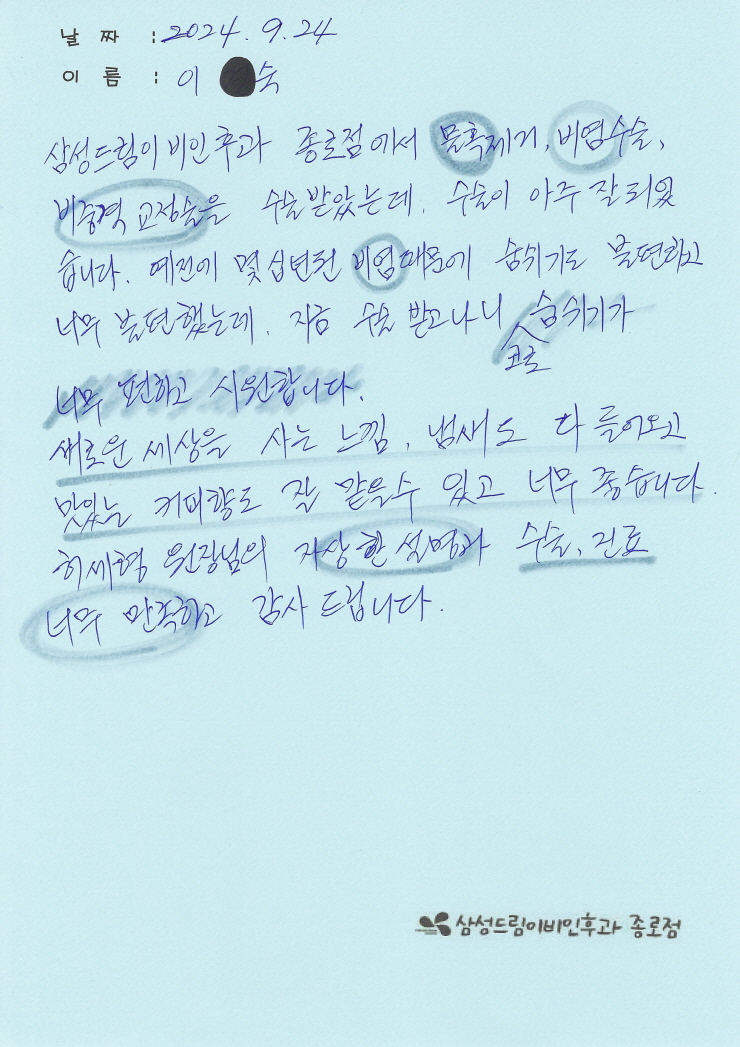 날 짜 : 2024. 9. 24
이 름 : 이 숙
삼성드림이비인후과 종로점에서 물혹제거, 비염수술,
비중격 교정술을 수술받았는데. 수술이 아주 잘 되었
습니다. 예전에 몇 십년된 비염때문에 숨쉬기도 불편하고
너무 불편했는데. 지금 수술 받고나니 코로 숨쉬기가
너무 편하고 시원합니다.
새로운 세상을 사는 느낌, 냄새도 다 들어오고
맛있는 커피향도 잘 맡을수 있고 너무 좋습니다.
허세형 원장님의 자상한 설명과 수술, 진료
너무 만족하고 감사 드립니다.
삼성드림이비인후과 종로점